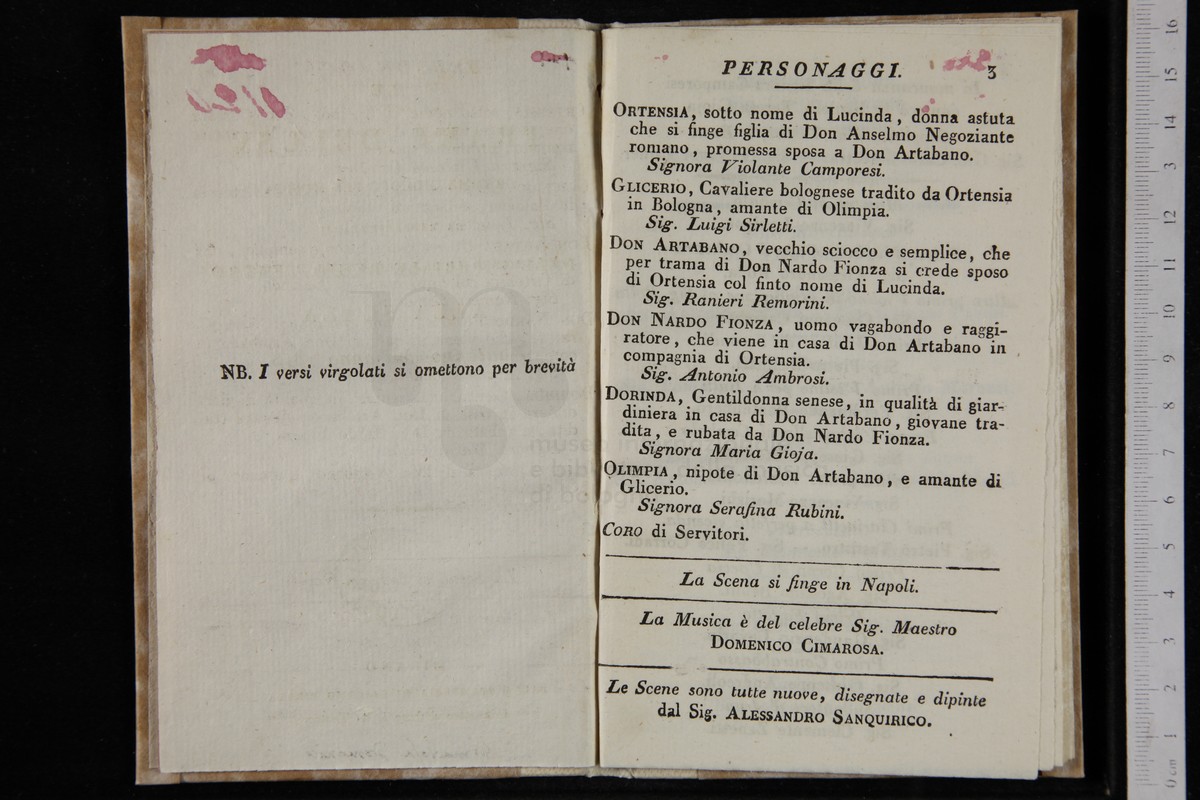 NB. I versi virgolati si omettono per brevità
PERSONAGGI. 3
ORTENSIA, sotto nome di Lucinda, donna astuta
che si finge figlia di Don Anselmo Negoziante
romano, promessa sposa a Don Artabano.
Signora Violante Camporesi.
GLICERIO, Cavaliere bolognese tradito da Ortensia
in Bologna, amante di Olimpia.
Sig. Luigi Sirletti.
DON ARTABANO, vecchio sciocco e semplice, che
per trama di Don Nardo Fionza si crede sposo
di Ortensia col finto nome di Lucinda.
Sig. Ranieri Remorini.
DON NARDO FIONZA, uomo vagabondo e raggi-
ratore, che viene in casa di Don Artabano in
compagnia di Ortensia.
Sig. Antonio Ambrosi.
DORINDA, Gentildonna senese, in qualità di giar-
diniera in casa di Don Artabano, giovane tra-
dita, e rubata da Don Nardo Fionza.
Signora Maria Gioja.
OLIMPIA, nipote di Don Artabano, e amante di
Glicerio.
Signora Serafina Rubini.
CORO di Servitori.
La Scena si finge in Napoli.
La Musica è del celebre Sig. Maestro
DOMENICO CIMAROSA.
Le Scene sono tutte nuove, disegnate e dipinte
dal Sig. ALESSANDRO SANQUIRICO.
0 cm 1 2 3 4 5 6 7 8 9 10 11 12 3 14 15 16